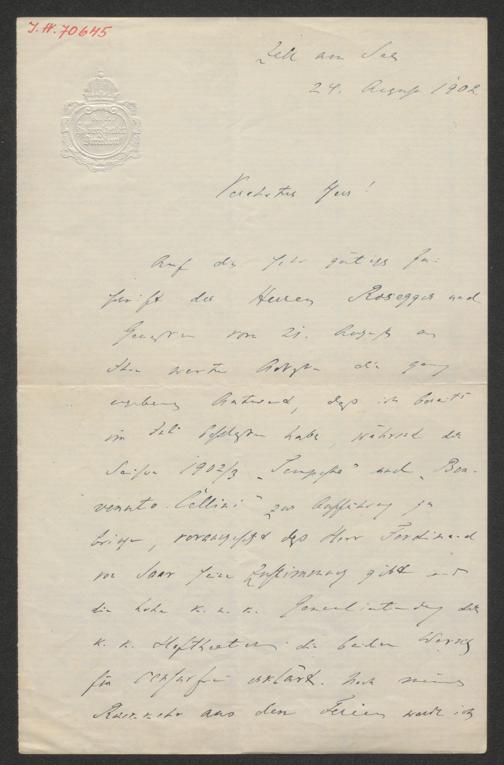 I.N. 70645
Zell am See
24. August 1902
Verehrter Herr!
Auf die sehr gütige Zu-
schrift der Herren Rosegger und
Genossen vom 21. August an
Ihre werthe Adresse die ganz
ergebene Antwort, daß ich bereits
im Juli beschlossen habe, während der
Saison 1902/3 „Tempesta" und „Ben-
venuto Cellini" zur Aufführung zu
bringen, vorausgesetzt daß Herr Ferdinand
von Saar seine Zustimmung gibt und
die hohe k. u. k. Generalintendanz der
k. k. Hoftheater die beiden Werke
für censurfrei erklärt. Nach meiner
Rückkehr aus den Ferien werde ich